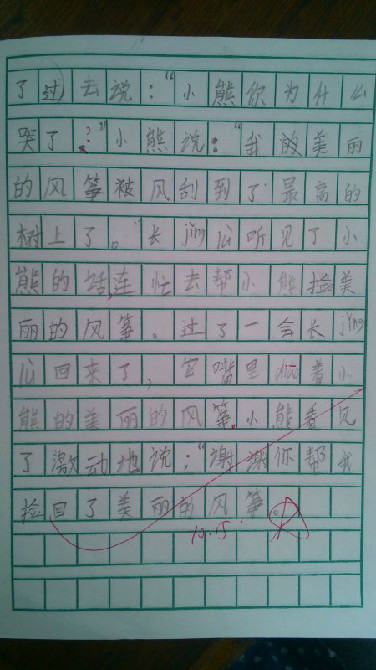 了过去说：“小熊你为什么
哭了？”小熊说：“我的美丽
的风筝被风刮到了最高的
树上了。”长jǐng lù听见了小
熊的话，连忙去帮小熊捡美
丽的风筝。过了一会长jǐng
lù回来了，它嘴里 着小
熊的美丽的风筝。小熊看见
了激动地说：“谢谢你帮我
捡回了美丽的风筝
12.15